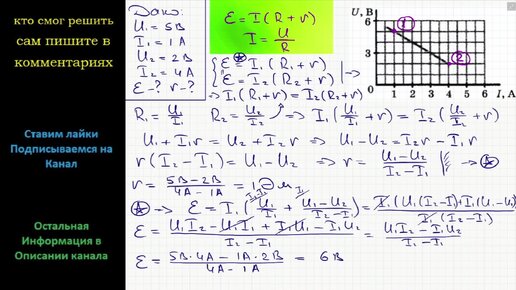 кто смог решить
сам пишите в
комментариях
Ставим лайки
Подписываемся на
Канал
Остальная
Информация в
Описании канала
Дано:
U₁ = 5В
I₁ = 1А
U₂ = 2В
I₂ = 4А
ℰ - ? r - ?
ℰ = I(R + r)
I = U/R
{ ℰ = I₁(R₁ + r)
{ ℰ = I₂(R₂ + r) | →
→ I₁(R₁ + r) = I₂(R₂ + r)
U, В
6
3
0 1 2 3 4 5 6 I, А
1
2
R₁ = U₁/I₁ R₂ = U₂/I₂ ⇒ I₁(U₁/I₁ + r) = I₂(U₂/I₂ + r)
U₁ + I₁r = U₂ + I₂r ⇒ U₁ - U₂ = I₂r - I₁r
r(I₂ - I₁) = U₁ - U₂ ⇒ r = (U₁ - U₂)/(I₂ - I₁)
r = (5В - 2В)/(4А - 1А) = 1 Ом
→ ℰ = I₁(U₁/I₁ + (U₁ - U₂)/(I₂ - I₁)) = I₁(U₁(I₂ - I₁) + I₁(U₁ - U₂))/(I₁(I₂ - I₁))
ℰ = (U₁I₂ - U₁I₁ + I₁U₁ - I₁U₂)/(I₂ - I₁) = (U₁I₂ - I₁U₂)/(I₂ - I₁)
ℰ = (5В · 4А - 1А · 2В)/(4А - 1А) = 6В